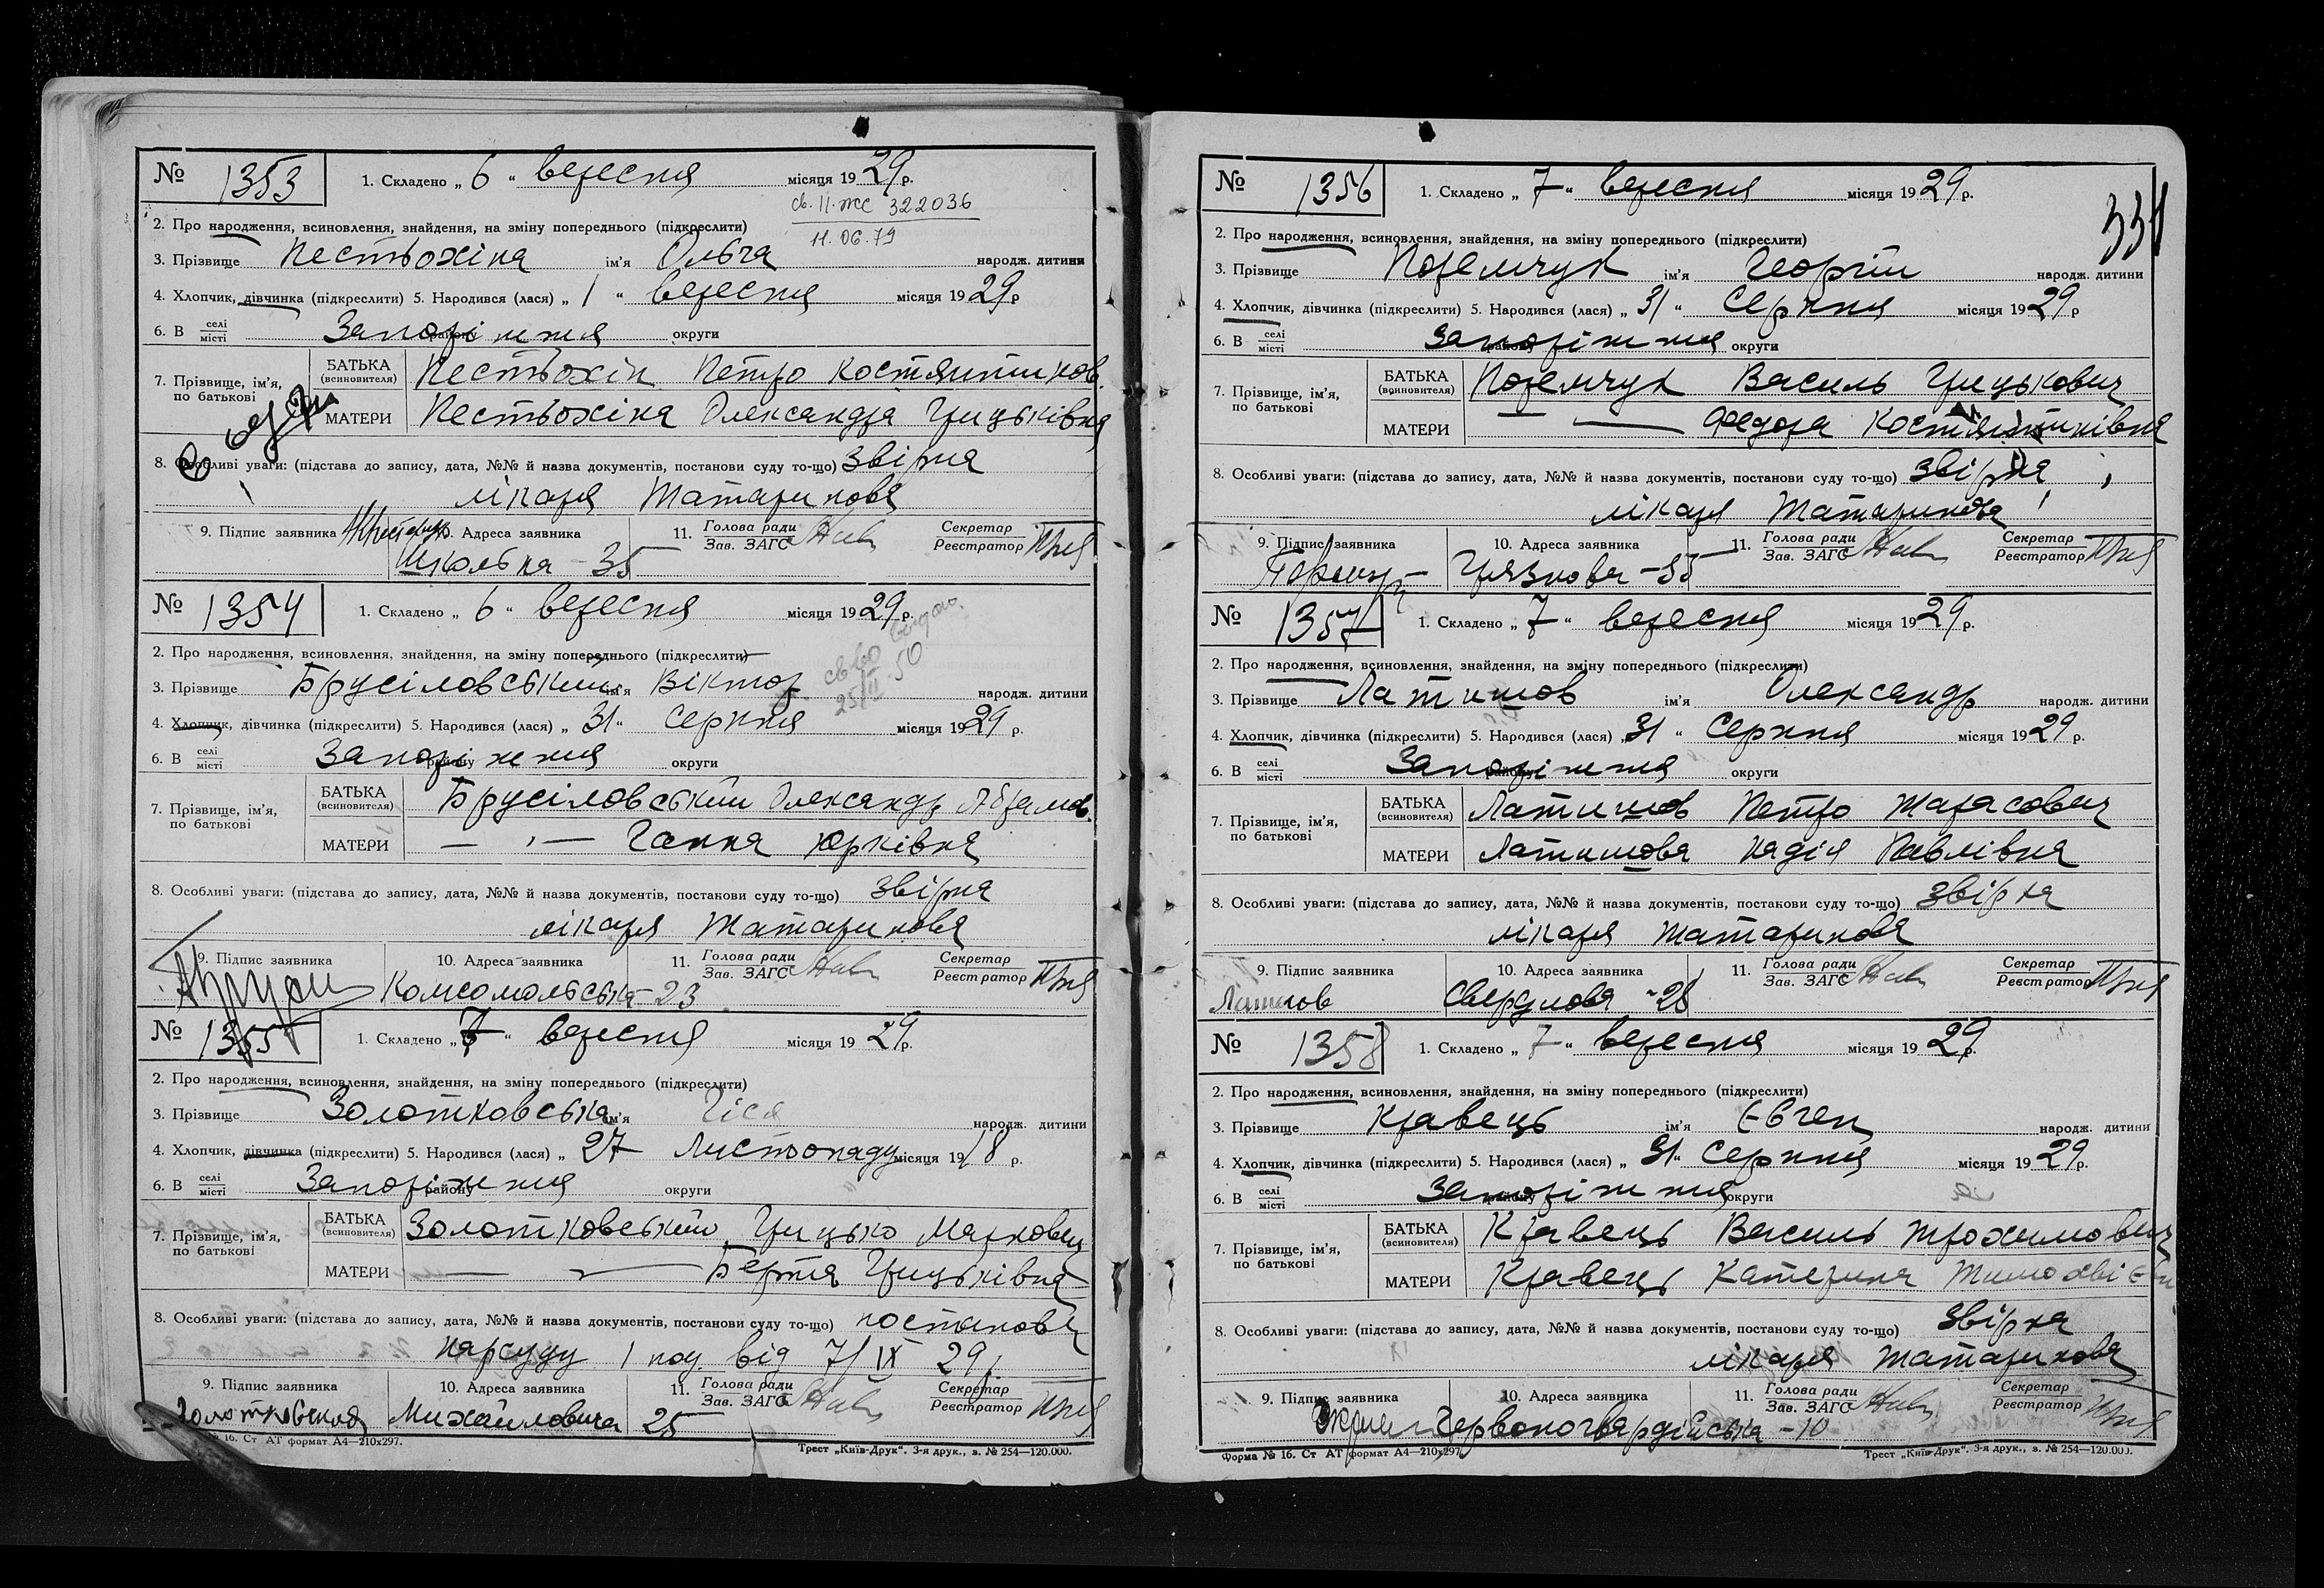 № 1353 1. Складено „ 6 “ вересня місяця 1929 р.
св. II-ЖС 322036
11.06.79
2. Про народження, всиновлення, знайдення, на зміну попереднього (підкреслити)
3. Прізвище Пестьохіна ім'я Ольга народж. дитини
4. Хлопчик, дівчинка (підкреслити) 5. Народився (лася) „ 1 “ вересня місяця 1929 р
6. В селі місті Запоріжжя району округи
7. Прізвище, ім'я, по батькові
БАТЬКА (всиновителя) Пестьохін Петро Костянтинов.
МАТЕРИ Пестьохіна Олександра Грицьківна
8. Особливі уваги: (підстава до запису, дата, №№ й назва документів, постанови суду то-що) звірка
лікаря Татаринова
9. Підпис заявника 10. Адреса заявника 11. Голова ради Зав. ЗАГС Секретар Реєстратор
Шкільна - 35
№ 1354 1. Складено „ 6 “ вересня місяця 1929 р.
св-во видано
25/II-50
2. Про народження, всиновлення, знайдення, на зміну попереднього (підкреслити)
3. Прізвище Брусіловський ім'я Віктор народж. дитини
4. Хлопчик, дівчинка (підкреслити) 5. Народився (лася) „ 31 “ серпня місяця 1929 р.
6. В селі місті Запоріжжя району округи
7. Прізвище, ім'я, по батькові
БАТЬКА (всиновителя) Брусіловський Олександр Абрамов.
МАТЕРИ — „ — Ганна Юрківна
8. Особливі уваги: (підстава до запису, дата, №№ й назва документів, постанови суду то-що) звірка
лікаря Татаринова
9. Підпис заявника 10. Адреса заявника 11. Голова ради Зав. ЗАГС Секретар Реєстратор
Комсомольська - 23
№ 1355 1. Складено „ 7 “ вересня місяця 1929 р.
2. Про народження, всиновлення, знайдення, на зміну попереднього (підкреслити)
3. Прізвище Золотковська ім'я Гіся народж. дитини
4. Хлопчик, дівчинка (підкреслити) 5. Народився (лася) „ 27 Листопаду місяця 1918 р.
6. В селі місті Запоріжжя району округи
7. Прізвище, ім'я, по батькові
БАТЬКА (всиновителя) Золотковський Грицько Маркович
МАТЕРИ — — Берта Грицьківна
8. Особливі уваги: (підстава до запису, дата, №№ й назва документів, постанови суду то-що) постанова
нарсуду 1 поу. від 7/IX 29 р.
9. Підпис заявника 10. Адреса заявника 11. Голова ради Зав. ЗАГС Секретар Реєстратор
Золотковская Михайловича 25
№ 16. Ст АТ формат А4—210х297. Трест „Київ-Друк“. 3-я друк., з. № 254—120.000.
331
№ 1356 1. Складено „ 7 “ вересня місяця 1929 р.
2. Про народження, всиновлення, знайдення, на зміну попереднього (підкреслити)
3. Прізвище Поремчук ім'я Георгій народж. дитини
4. Хлопчик, дівчинка (підкреслити) 5. Народився (лася) „ 31 “ Серпня місяця 1929 р
6. В селі місті Запоріжжя району округи
7. Прізвище, ім'я, по батькові
БАТЬКА (всиновителя) Поремчук Василь Грицькович
МАТЕРИ — — Федора Костянтинівна
8. Особливі уваги: (підстава до запису, дата, №№ й назва документів, постанови суду то-що) звірка
лікаря Татаринова
9. Підпис заявника 10. Адреса заявника 11. Голова ради Зав. ЗАГС Секретар Реєстратор
Грязнова - 35
№ 1357 1. Складено „ 7 “ вересня місяця 1929 р.
2. Про народження, всиновлення, знайдення, на зміну попереднього (підкреслити)
3. Прізвище Латишов ім'я Олександр народж. дитини
4. Хлопчик, дівчинка (підкреслити) 5. Народився (лася) „ 31 “ Серпня місяця 1929 р.
6. В селі місті Запоріжжя району округи
7. Прізвище, ім'я, по батькові
БАТЬКА (всиновителя) Латишов Петро Тарасович
МАТЕРИ Латишова Надія Павлівна
8. Особливі уваги: (підстава до запису, дата, №№ й назва документів, постанови суду то-що) звірка
лікаря Татаринова
9. Підпис заявника 10. Адреса заявника 11. Голова ради Зав. ЗАГС Секретар Реєстратор
Латишов Свердлова - 28
№ 1358 1. Складено „ 7 “ вересня місяця 1929 р.
2. Про народження, всиновлення, знайдення, на зміну попереднього (підкреслити)
3. Прізвище Кравець ім'я Євген народж. дитини
4. Хлопчик, дівчинка (підкреслити) 5. Народився (лася) „ 31 “ Серпня місяця 1929 р.
6. В селі місті Запоріжжя району округи
7. Прізвище, ім'я, по батькові
БАТЬКА (всиновителя) Кравець Василь Трохимович
МАТЕРИ Кравець Катерина
8. Особливі уваги: (підстава до запису, дата, №№ й назва документів, постанови суду то-що) звірка
лікаря Татаринова
9. Підпис заявника 10. Адреса заявника 11. Голова ради Зав. ЗАГС Секретар Реєстратор
Червоногвардійська - 10
Форма № 16. Ст АТ формат А4—210х297. Трест „Київ-Друк“. 3-я друк., з. № 254—120.000.